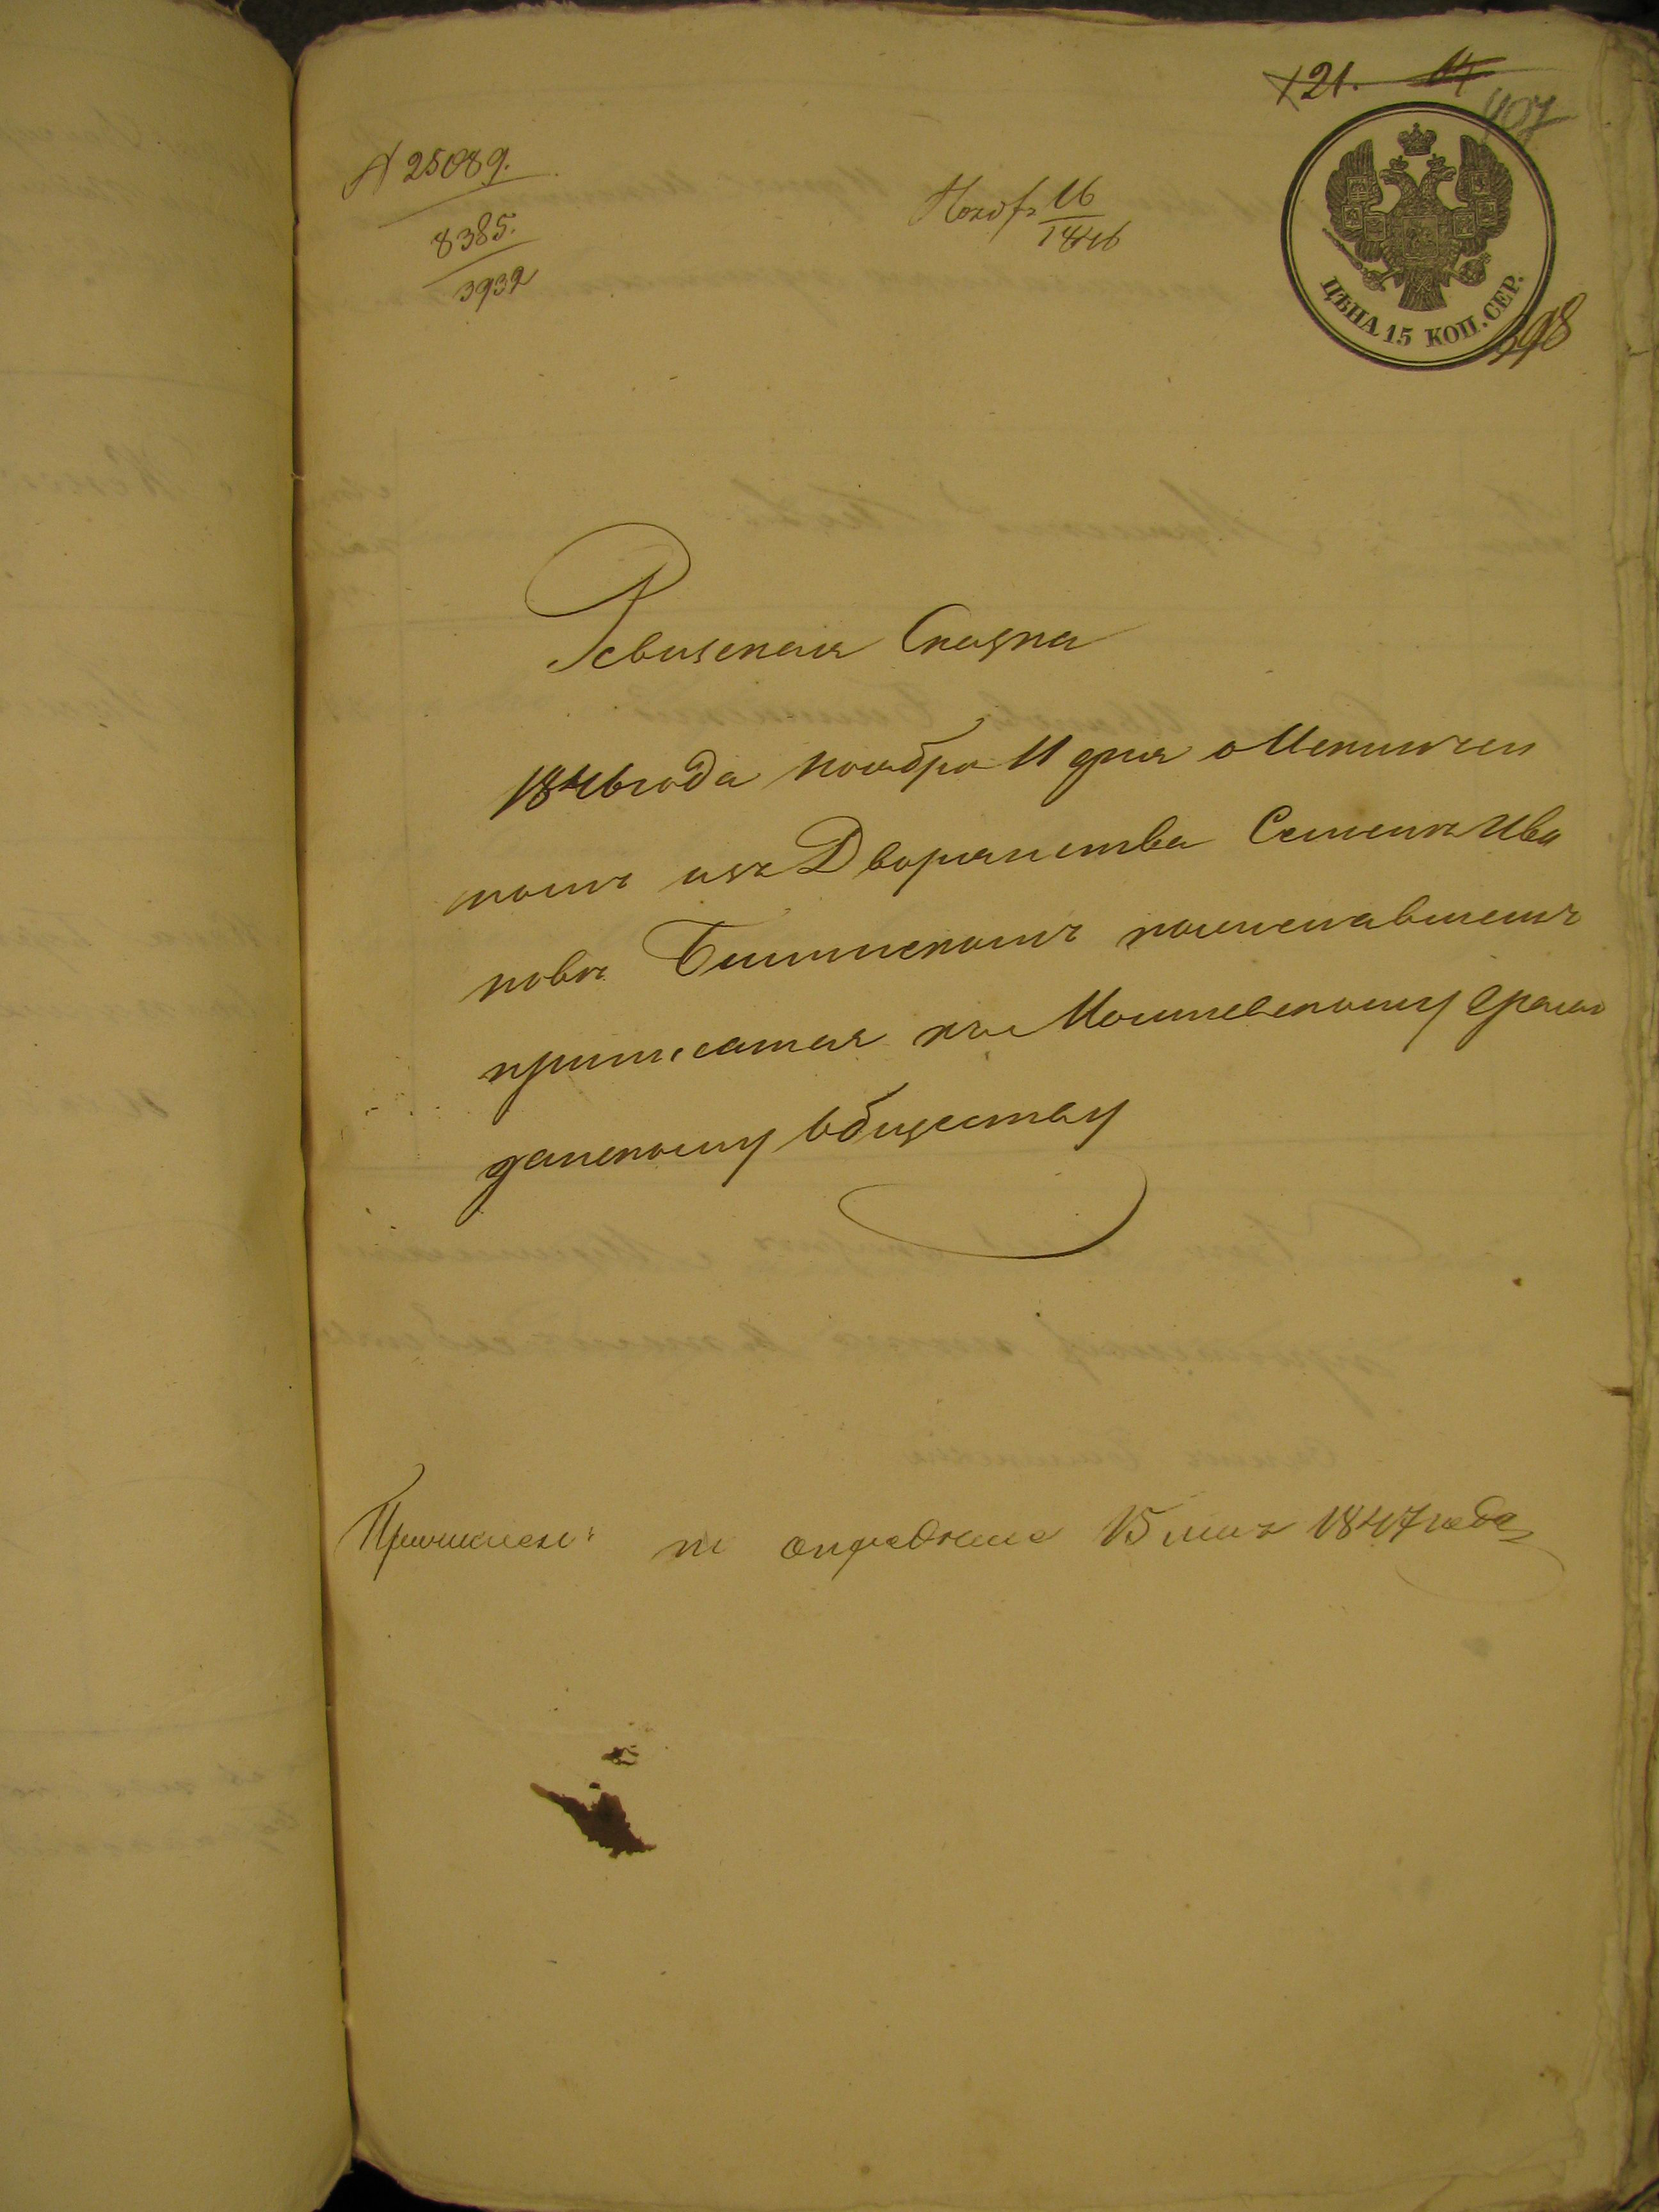 121. 14
407
№ 25089.
8385.
3932
Нояб 16
1846
ЦѢНА 15 КОП. СЕР.
398
Ревизская Сказка
1846 года ноября 11 дня о Исключен
номъ изъ Дворянства Семенѣ Ива
новѣ пожелавшемъ
приписаться къ Могилевскому граж
данскому обществу
Причисленъ по опредѣленію 15 мая 1847 года